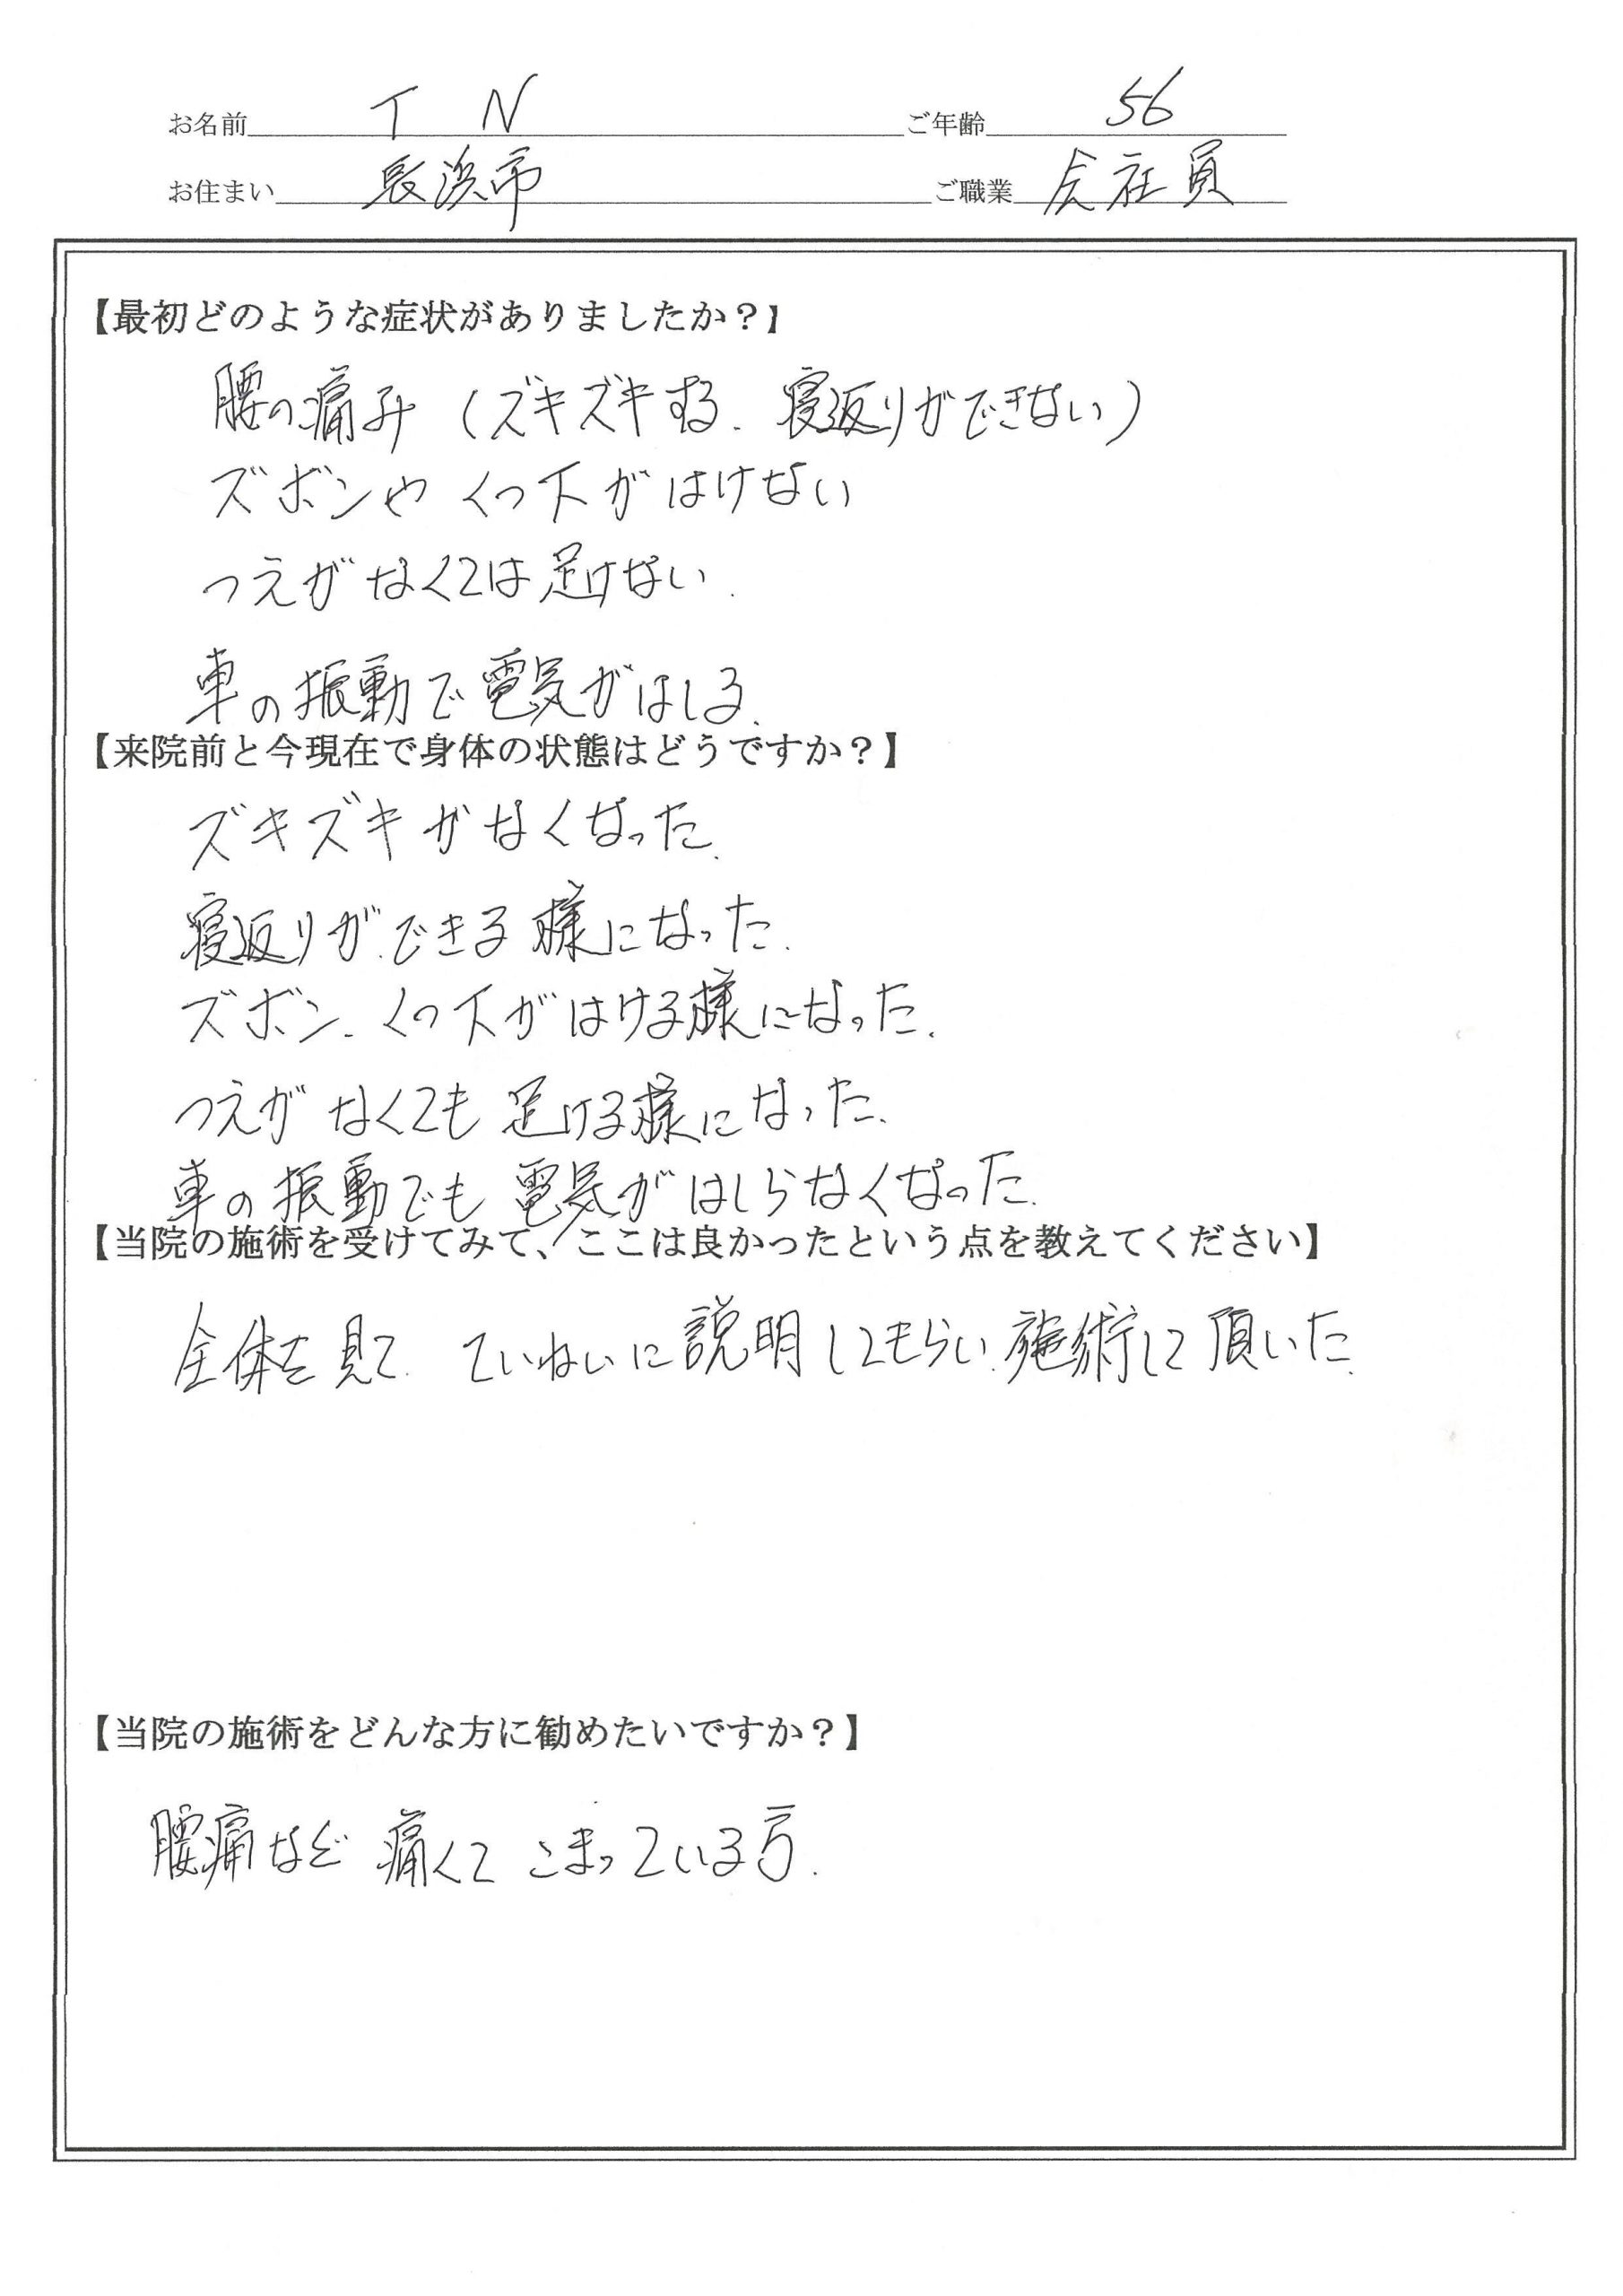 お名前 T N ご年齢 56
お住まい 長浜市 ご職業 会社員
【最初どのような症状がありましたか？】
腰の痛み（ズキズキする、寝返りができない）
ズボンやくつ下がはけない
つえがなくては足けない.
車の振動で電気がはしる.
【来院前と今現在で身体の状態はどうですか？】
ズキズキがなくなった.
寝返りができる様になった.
ズボン、くつ下がはける様になった.
つえがなくても足ける様になった.
車の振動でも電気がはしらなくなった.
【当院の施術を受けてみて、ここは良かったという点を教えてください】
全体を見て、ていねいに説明してもらい、施術して頂いた.
【当院の施術をどんな方に勧めたいですか？】
腰痛など痛くてこまっている方.